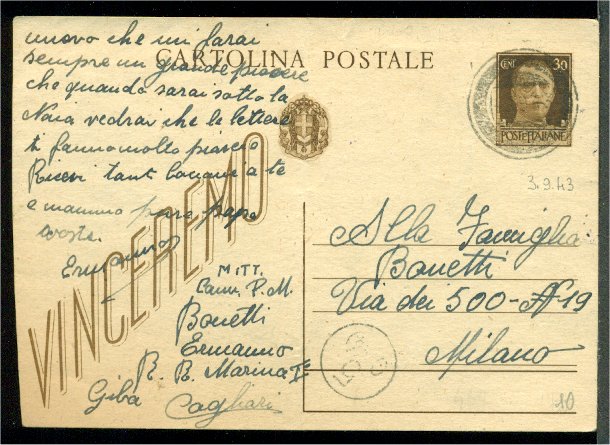 nuovo che mi farai
sempre un grande piacere
che quando sarai sotto la
Naia vedrai che le lettere
ti fanno molto piacere
Ricevi tant bacioni a te
e mamma pure papà
vostro
Ermanno
CARTOLINA POSTALE
CENT 30
POSTE ITALIANE
3.9.43
VINCEREMO
MITT.
P.M.
Bonetti
Ermanno
R. B. Marina
Giba Cagliari
Alla Famiglia
Bonetti
Via dei 500 - N 19
Milano
10